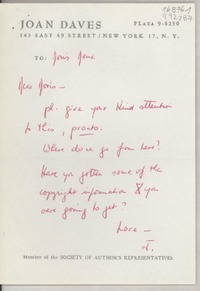 JOAN DAVES
PLAZA 9-6250
145 EAST 49 STREET / NEW YORK 17, N. Y.
TO:
Dear Doris —
pl. give your kind attention
to this, pronto.
Where do we go from here?
Have you gotten some of the
copyright information you
were going to get?
Love —
J.
Member of the SOCIETY OF AUTHOR'S REPRESENTATIVES